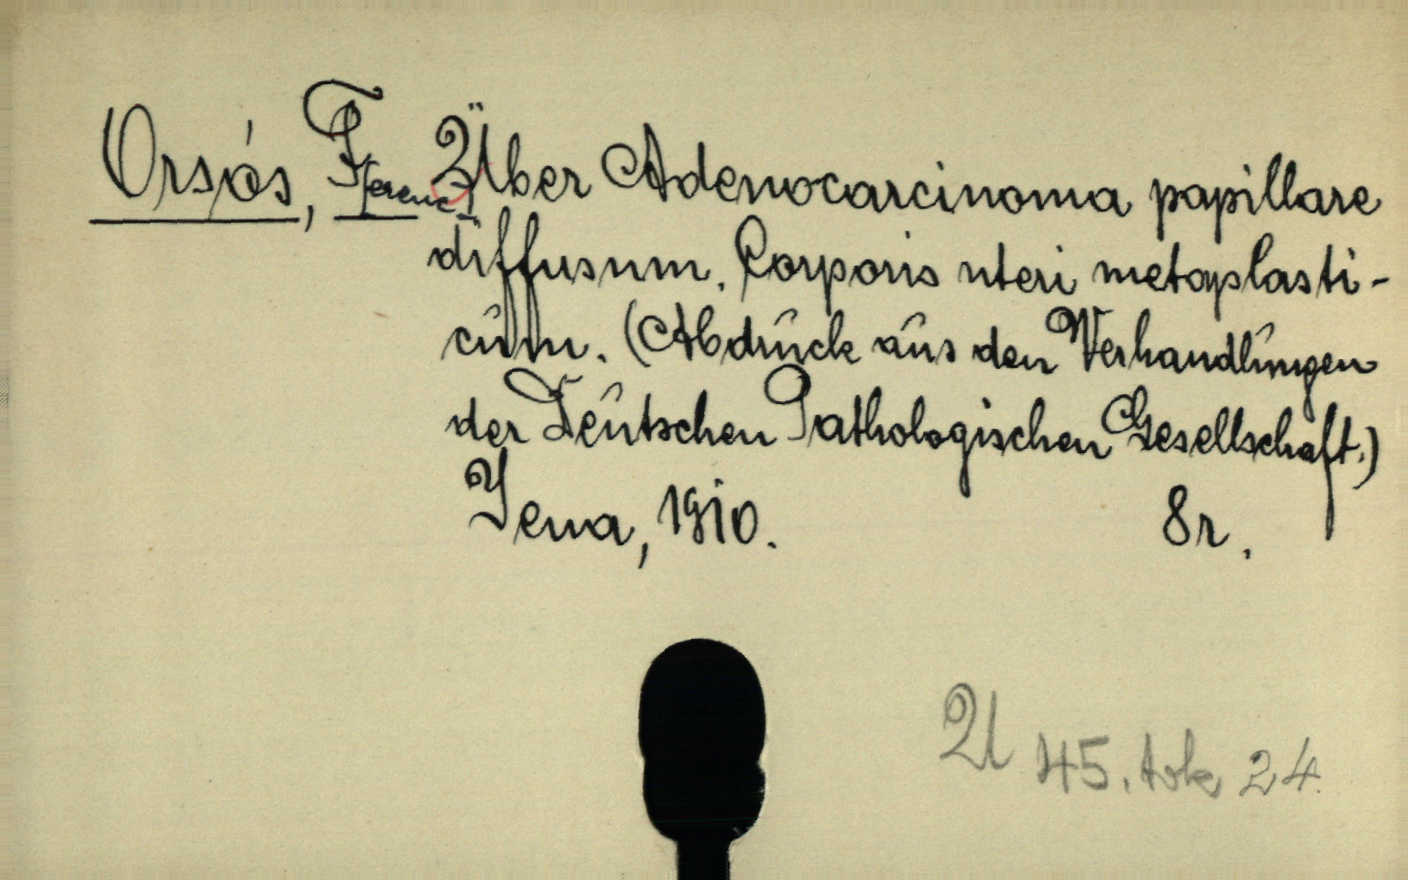 Orsós, F[erenc] Über Adenocarcinoma papillare
diffusum. Corporis uteri metaplasti-
cum. (Abdruck aus den Verhandlungen
der Deutschen Pathologischen Gesellschaft.)
Jena, 1910. 8r.
U 45. tok 24.